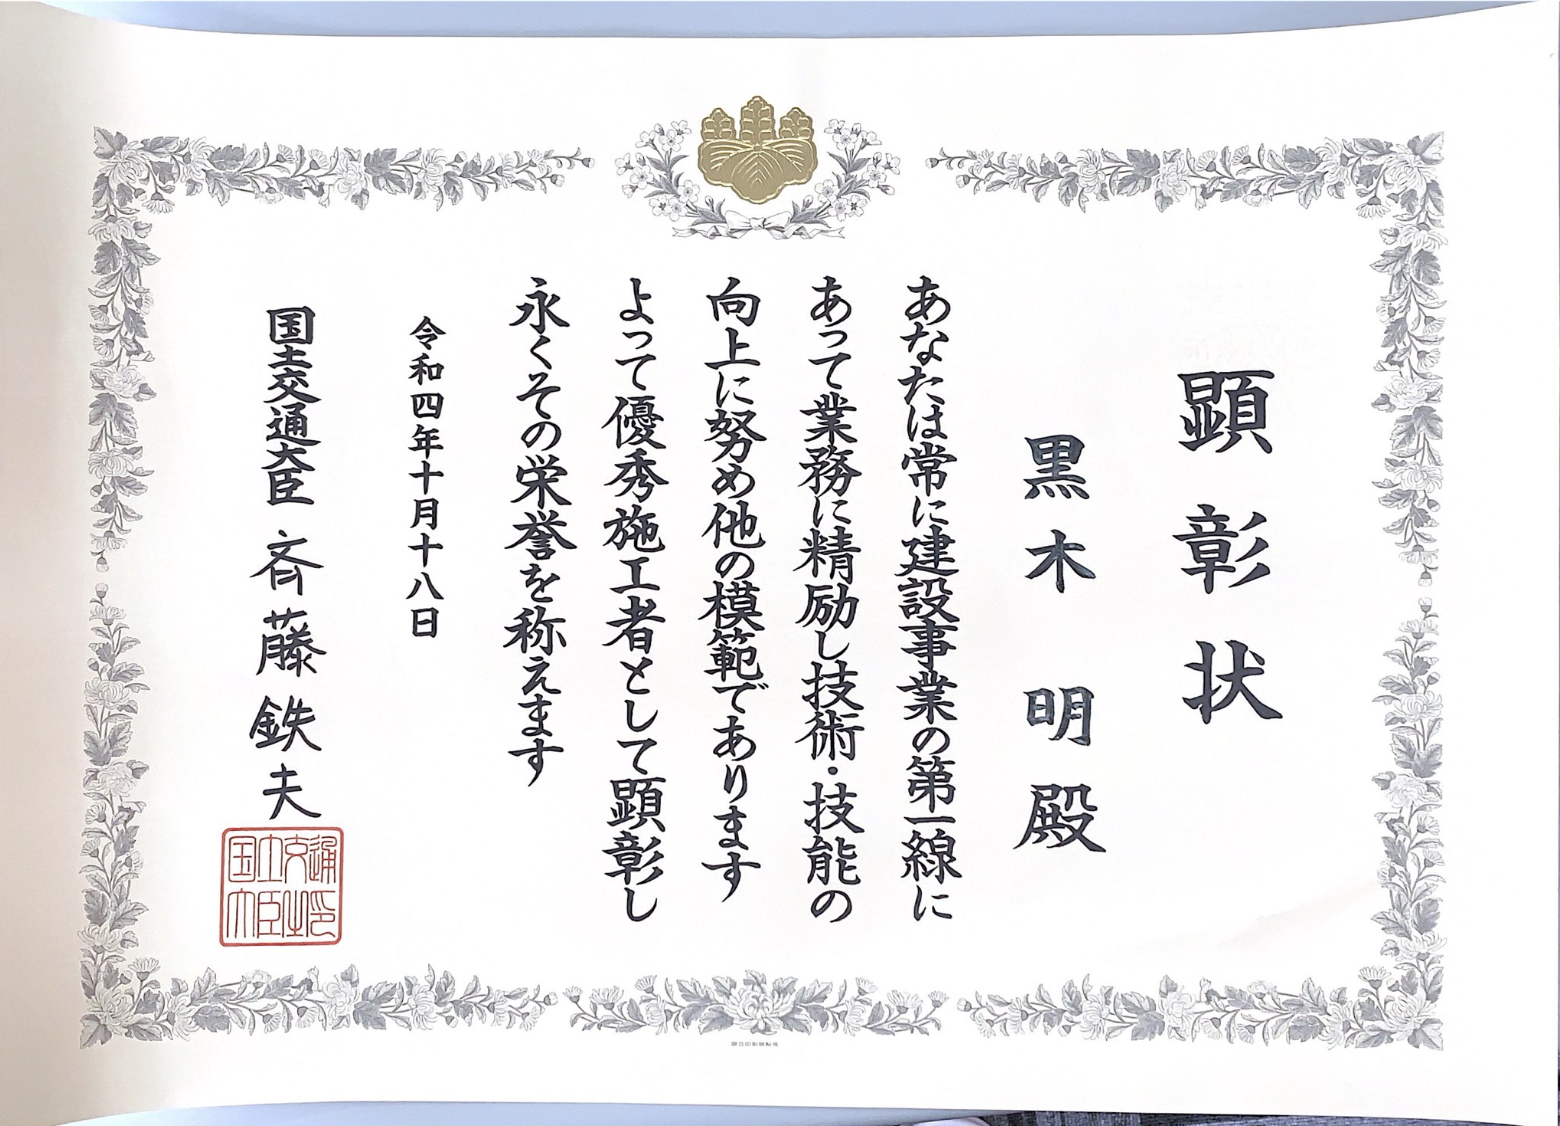 顕彰状
黒木 明 殿
あなたは常に建設事業の第一線に
あって業務に精励し技術・技能の
向上に努め他の模範であります
よって優秀施工者として顕彰し
永くその栄誉を称えます
令和四年十月十八日
国土交通大臣 斉藤鉄夫
国土交通大臣之印